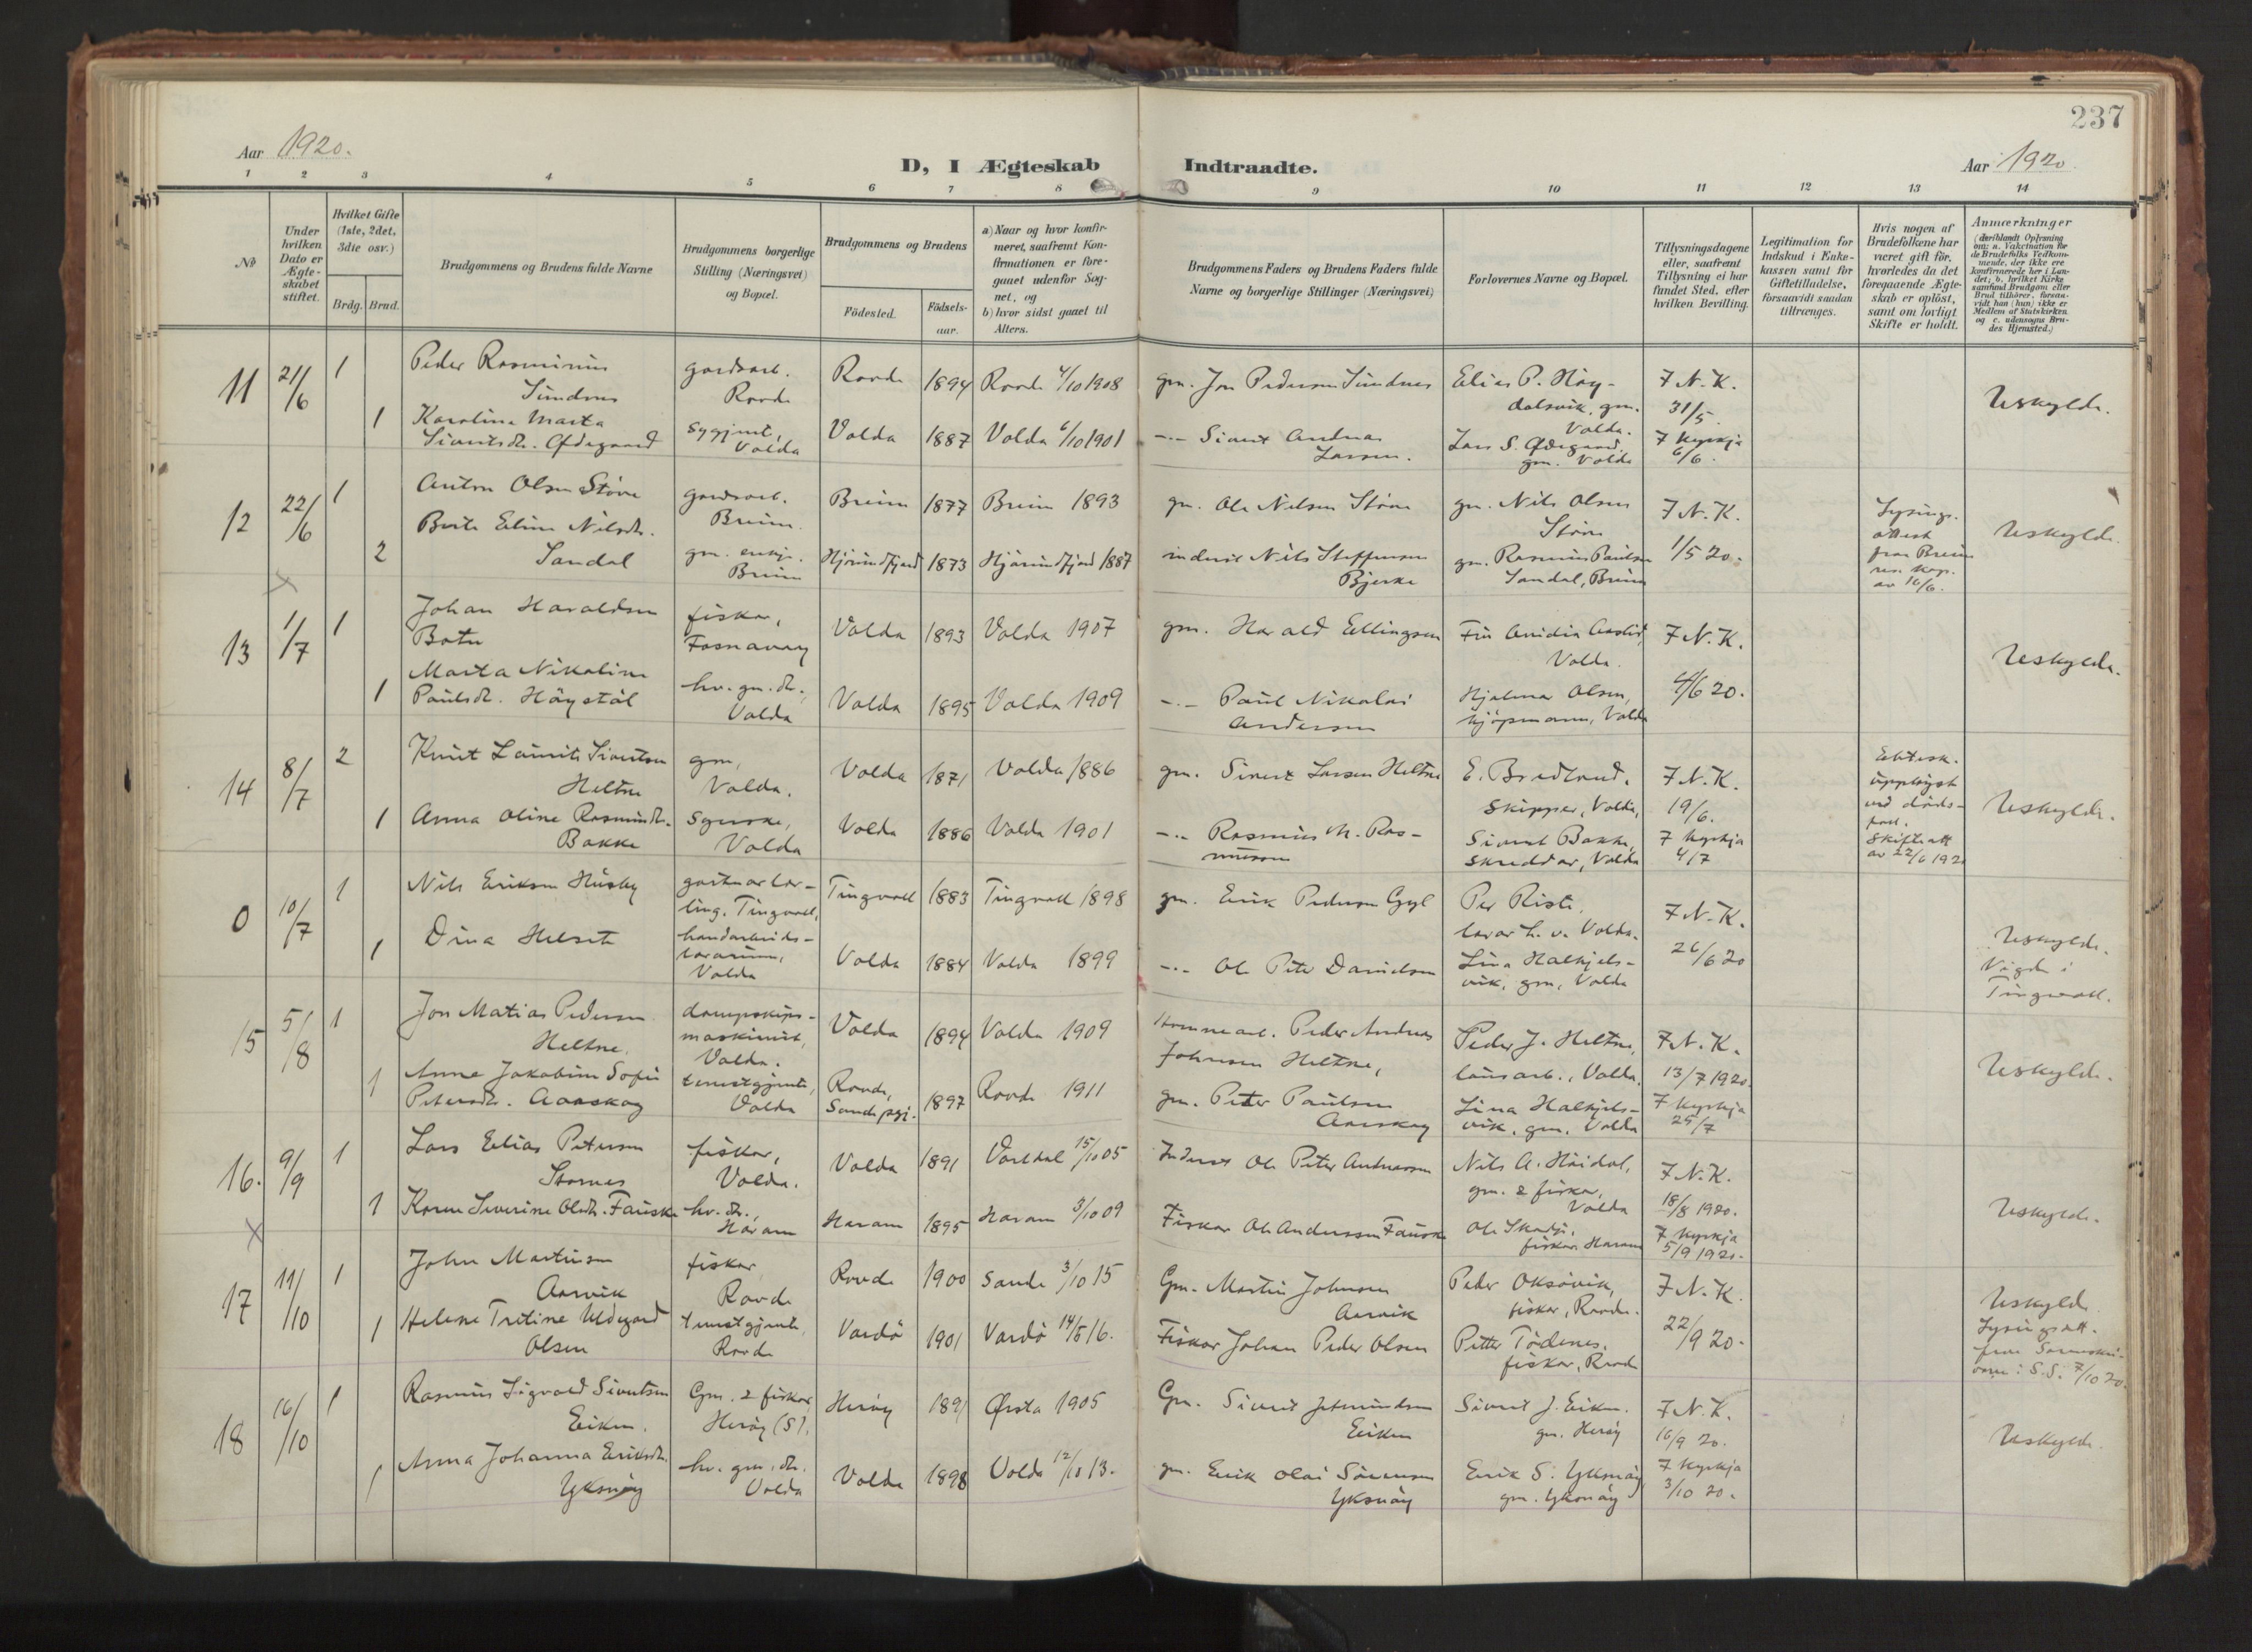 237
Aar 1920.
D, I Ægteskab Indtraadte.
Aar 1920.
1 2 3 4 5 6 7 8 9 10 11 12 13 14
No
Under hvilken Dato er Ægteskabet stiftet.
Hvilket Gifte (1ste, 2det, 3die osv.)
Brdg. Brud.
Brudgommens og Brudens fulde Navne
Brudgommens borgerlige Stilling (Næringsvei) og Bopæl.
Brudgommens og Brudens
Födested.
Födsels-aar.
a) Naar og hvor konfirmeret, saafremt Konfirmationen er foregaaet udenfor Sognet, og
b) hvor sidst gaaet til Alters.
Brudgommens Faders og Brudens Faders fulde Navne og borgerlige Stillinger (Næringsvei)
Forlovernes Navne og Bopæl.
Tillysningsdagene eller, saafremt Tillysning ei har fundet Sted, efter hvilken Bevilling.
Legitimation for Indskud i Enkekassen samt for Giftetilladelse, forsaavidt saadan tiltrænges.
Hvis nogen af Brudefolkene har været gift för, hvorledes da det foregaaende Ægteskab er oplöst, samt om lovligt Skifte er holdt.
Anmærkninger
(deriblandt Oplysning om: a. Vakcination for de Brudefolks Vedkommende, der ikke ere konfirmerede her i Landet; b. hvilket Kirkesamfund Brudgom eller Brud tilhörer, forsaavidt han (hun) ikke er Medlem af Statskirken og c. udensogns Brudes Hjemsted.)
11 21/6 1 Peder Rasminus
Sundnes
gardsarb.
Rovde
Rovde 1894 Rovde 4/10 1908
gm. Jon Pedersen Sundnes
Elias P. Höy-
dalsvik, gm.
Volda.
F N. K.
31/5.
Uskylde.
1 Karolina Marta
Sivertsdr. Ödegaard
sygjent,
Volda
Volda 1887 Volda 6/10 1901
-.- Sivert Andreas
Larsen.
Lars S. Ödegaard.
gm. Volda
F kyrkja
6/6.
12 22/6 1 Anton Olsen Störe
gardsarb.
Breim.
Breim 1877 Breim 1893
gm. Ole Nilsen Störe
gm. Nils Olsen
Störe
F N. K.
1/5 20.
Lysings-
attest
fraa Breim
res. kap.
av 16/6.
Uskylde.
2 Berte Eline Nilsdr.
Sandal
gm. enkje.
Breim
Hjörundfjord 1873 Hjörundfjord 1887
inderst Nils Steffensen
Bjerke
gm. Rasmus Paulsen
Sandal, Breim
13 1/7 1 Johan Haraldsen
Botn
fiskar,
Fosnavaag
Volda 1893 Volda 1907
gm. Harald Ellingsen
Volda.
F N. K.
4/6 20.
Uskylde.
1 Marta Nikoline
Paulsdr. Höystöl
hv. gm. dr.,
Volda
Volda 1895 Volda 1909
-.- Paul Nikolai
Andersen
Hjalmar Olsen,
kjöpmann, Volda
14 8/7 2 Knut Laurits Sivertsen
Heltne
gm,
Volda.
Volda 1871 Volda 1886
gm. Sivert Larsen Heltne
E. Bredlund,
skipper, Volda,
F N. K.
19/6.
Ektesk.
upplöyst
ved döds-
fall.
Skifteatt
av 22/6 192
Uskylde.
1 Anna Oline Rasmusdr.
Bakke
Syerske,
Volda
Volda 1886 Volda 1901
-.- Rasmus M. Ras-
mussen
Sivert Bakke,
skreddar, Volda
F kyrkja
4/7
0 10/7 1 Nils Eriksen Husby
gartnarlær-
ling, Tingvoll,
Tingvoll 1883 Tingvoll 1898
gm. Erik Pedersen Gyl
Per Riste,
lærar h. v. Volda.
F N. K.
26/6 20
Uskylde.
Vigde i
Tingvoll.
1 Dina Helset
handarbeids-
lærarinne,
Volda
Volda 1884 Volda 1899
-.- Ole Peter Danielsen
Lina Halkjels-
vik, gm, Volda
15 5/8 1 Jon Matias Pedersen
Heltne.
dampskips-
maskinist,
Volda.
Volda 1894 Volda 1909
Tömmerarb. Peder Andreas
Johnsen Heltne,
Peder J. Heltne,
lausarb., Volda.
F N. K.
13/7 1920.
Uskylde.
1 Anne Jakobine Sofie
Petersdr. Aarskog
tenestgjente,
Volda
Rovde,
Sande pgj.
1897 Rovde 1911
gm. Peter Paulsen
Aarskog
Lina Halkjels-
vik, gm. Volda
F kyrkja
25/7
16. 9/9 1 Lars Elias Petersen
Stornes
fiskar,
Volda.
Volda 1891 Vartdal 15/10 05
Inderst Ole Peter Andreassen
Nils A. Höidal,
gm. & fiskar,
Volda
F N. K.
18/8 1920.
Uskylde.
1 Karen Severine Olsdr. Fauske
hv. dr.,
Haram
Haram 1895 Haram 3/10 09
Fiskar Ole Anderssen Fauske
Ole Skodje,
fiskar, Haram
F kyrkja
5/9 1920.
17 11/10 1 John Martinsen
Aarvik
fiskar
Rovde
Rovde 1900 Sande 3/10 15
Gm. Martin Johnsen
Aarvik
Peder Oksavik,
fiskar, Rovde.
F N. K.
22/9 20.
Uskylde
Lysingsatt.
fraa Sorenskri-
varen i S.S. 7/10 20.
1 Helene Tretine Uldegard
Olsen
tenestgjente,
Rovde
Vardö 1901 Vardö 14/5 16.
Fiskar Johan Peder Olsen
Petter Tödenes,
fiskar, Rovde
18 16/10 1 Rasmus Sigvald Sivertsen
Eiken.
Gm. & fiskar,
Heröy (S).
Heröy 1891 Örsta 1905
Gm. Sivert Jetmundsen
Eiken
Sivert J. Eiken.
gm. Heröy
F N. K.
16/9 20.
Uskylde.
1 Anna Johanna Eriksdr.
Yksnöy
hv. gm. dr.
Volda
Volda 1898 Volda 12/10 13.
gm. Erik Olai Sörensen
Yksnöy
Erik S. Yksnöy
gm. Yksnöy
F kyrkja
3/10 20.